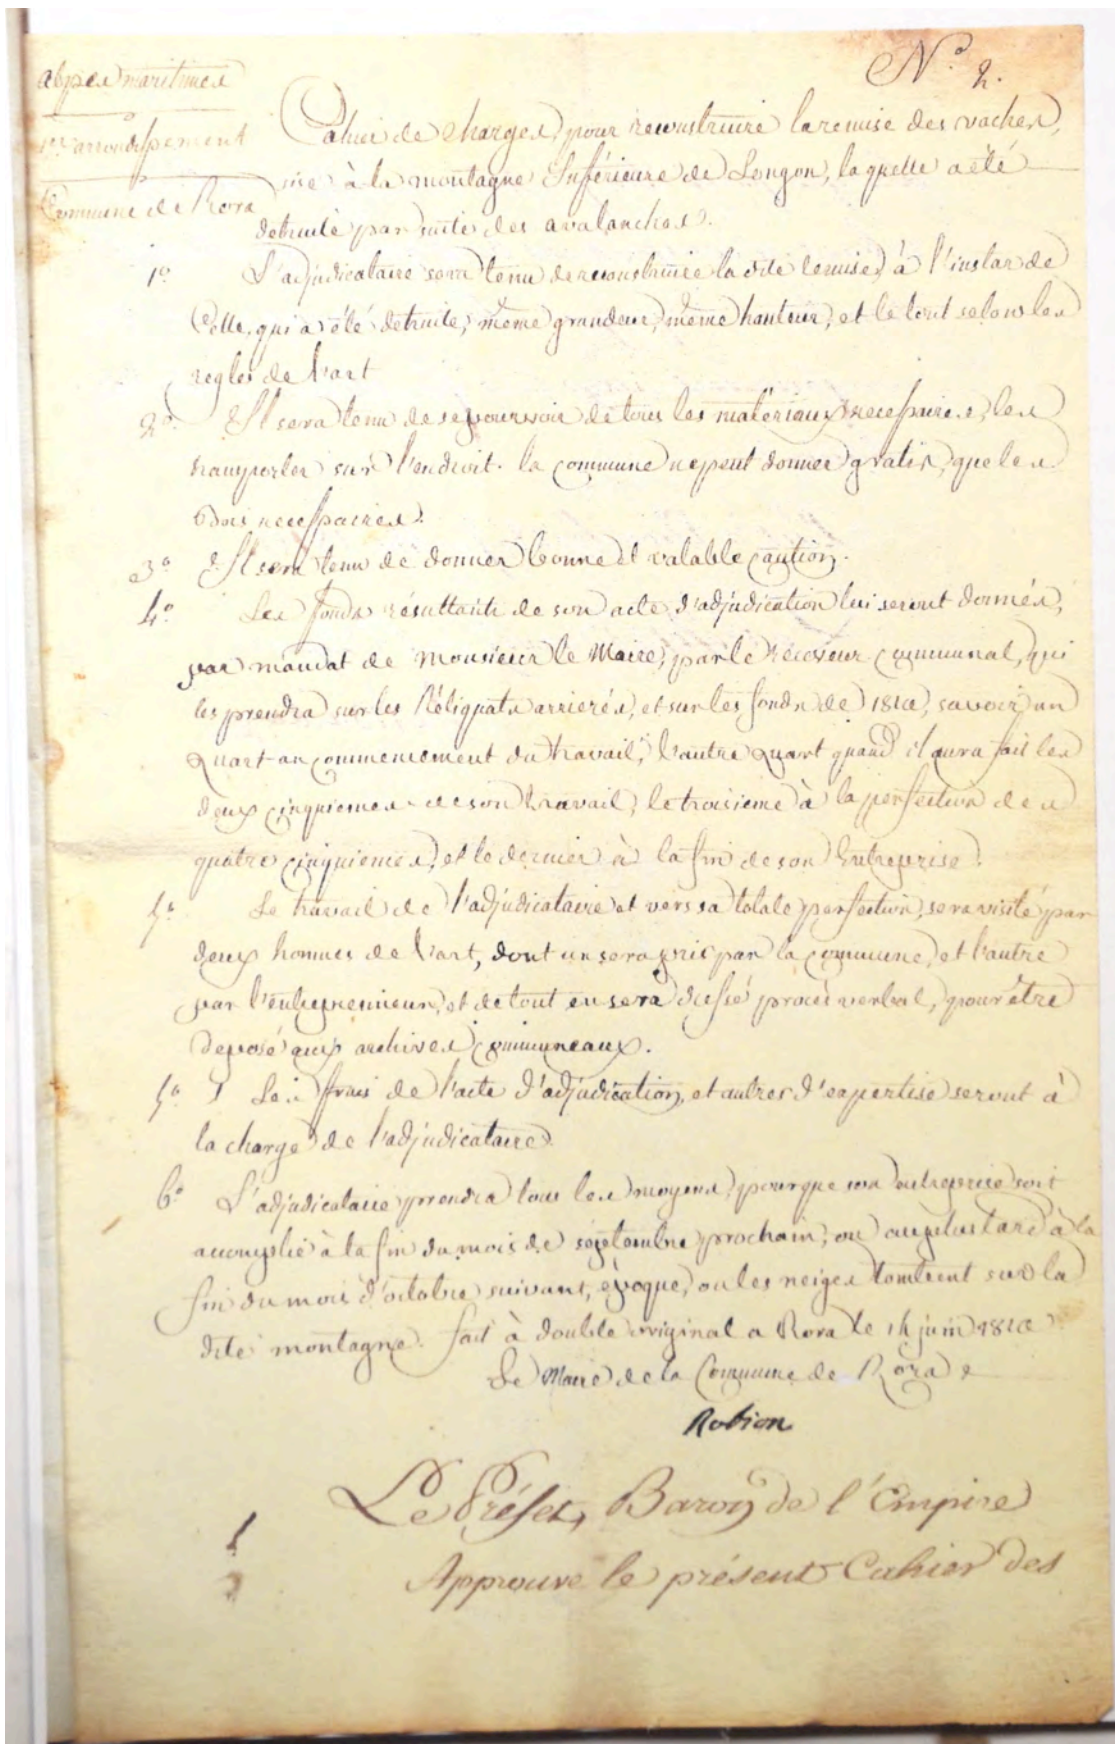 N.º 2.
alpes maritimes
1er arrondissement
Commune de Rora
Cahier de charges, pour reconstruire la remise des vaches,
sise à la montagne Inférieure de Longon, laquelle a été
detruite par suite des avalanches.
1º L'adjudicataire sera tenu de reconstruire la dite remise, à l'instar de
Celle, qui a été detruite, même grandeur, même hauteur, et le tout selon les
regles de l'art
2º Il sera tenu de se pourvoir de tous les materiaux necessaires, les
transporter sur l'endroit. la commune ne peut donner gratis, que les
Bois necessaires.
3º Il sera tenu de donner bonne et valable caution.
4º Les fonds résultants de son acte d'adjudication lui seront donnés,
par mandat de Monsieur le Maire, par le receveur communal, qui
les prendra sur les Réliquats arrierés, et sur les fonds de 1812, savoir, un
quart au commencement du travail, l'autre quart quand il aura fait les
deux cinquiemes de son travail, le troisieme à la perfection des
quatre cinquiemes, et le dernier à la fin de son Entreprise.
5º Le travail de l'adjudicataire et vers sa totale perfection, sera visité par
deux hommes de l'art, dont un sera pris par la commune, et l'autre
par l'entreprenneur, et de tout en sera dressé procès verbal, pour être
deposé aux archives communeaux.
5º Les frais de l'acte d'adjudication, et autres d'expertise seront à
la charge de l'adjudicataire.
6º L'adjudicataire prendra tous les moyens, pourque son entreprise soit
accomplie à la fin du mois de septembre prochain, ou au plus tard à la
fin du mois d'octobre suivant, époque, ou les neiges tombent sur la
dite montagne. fait à double original a Rora le 14 juin 1812
Le Maire de la Commune de Rora
Robion
Le Préfet, Baron de l'Empire
Approuve le présent Cahier des